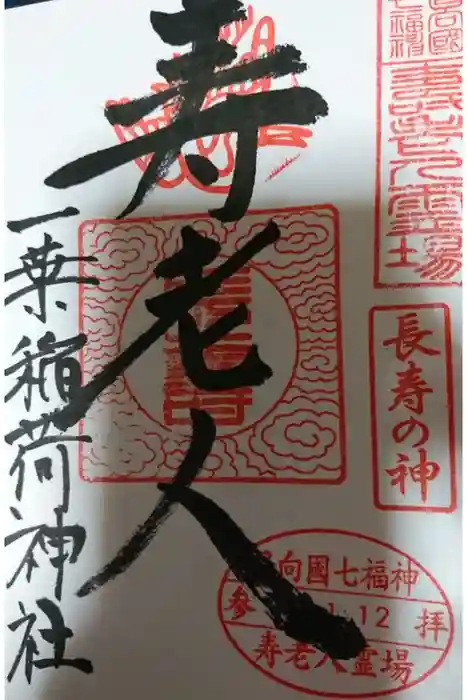 寿老人霊場
長寿の神
寿老人
一葉稲荷神社
日向國七福神
参 12 拝
寿老人霊場